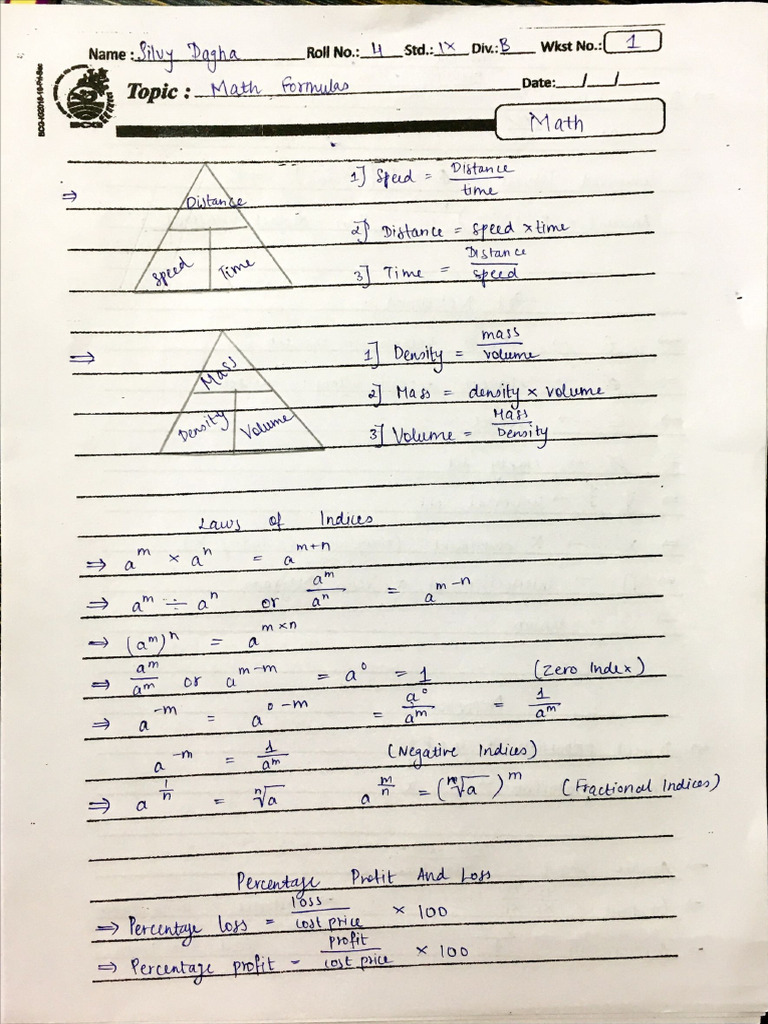 Name : Silvy Dagha Roll No.: 4 Std.: IX Div.: B Wkst No.: 1
BCG-K/2015-16-Pri-Sec
BCG
Topic : Math Formulas Date: / /
Math
⇒ Distance
Speed Time
1] Speed = Distance / time
2] Distance = speed × time
3] Time = Distance / speed
⇒ Mass
Density Volume
1] Density = mass / volume
2] Mass = density × volume
3] Volume = Mass / Density
Laws of Indices
⇒ a^m × a^n = a^(m+n)
⇒ a^m ÷ a^n or a^m / a^n = a^(m−n)
⇒ (a^m)^n = a^(m×n)
⇒ a^m / a^m or a^(m−m) = a^0 = 1 (Zero Index)
⇒ a^(−m) = a^(0−m) = a^0 / a^m = 1 / a^m
a^(−m) = 1 / a^m (Negative Indices)
⇒ a^(1/n) = ⁿ√a a^(m/n) = (ⁿ√a)^m (Fractional Indices)
Percentage Profit And Loss
⇒ Percentage loss = loss / cost price × 100
⇒ Percentage profit = profit / cost price × 100